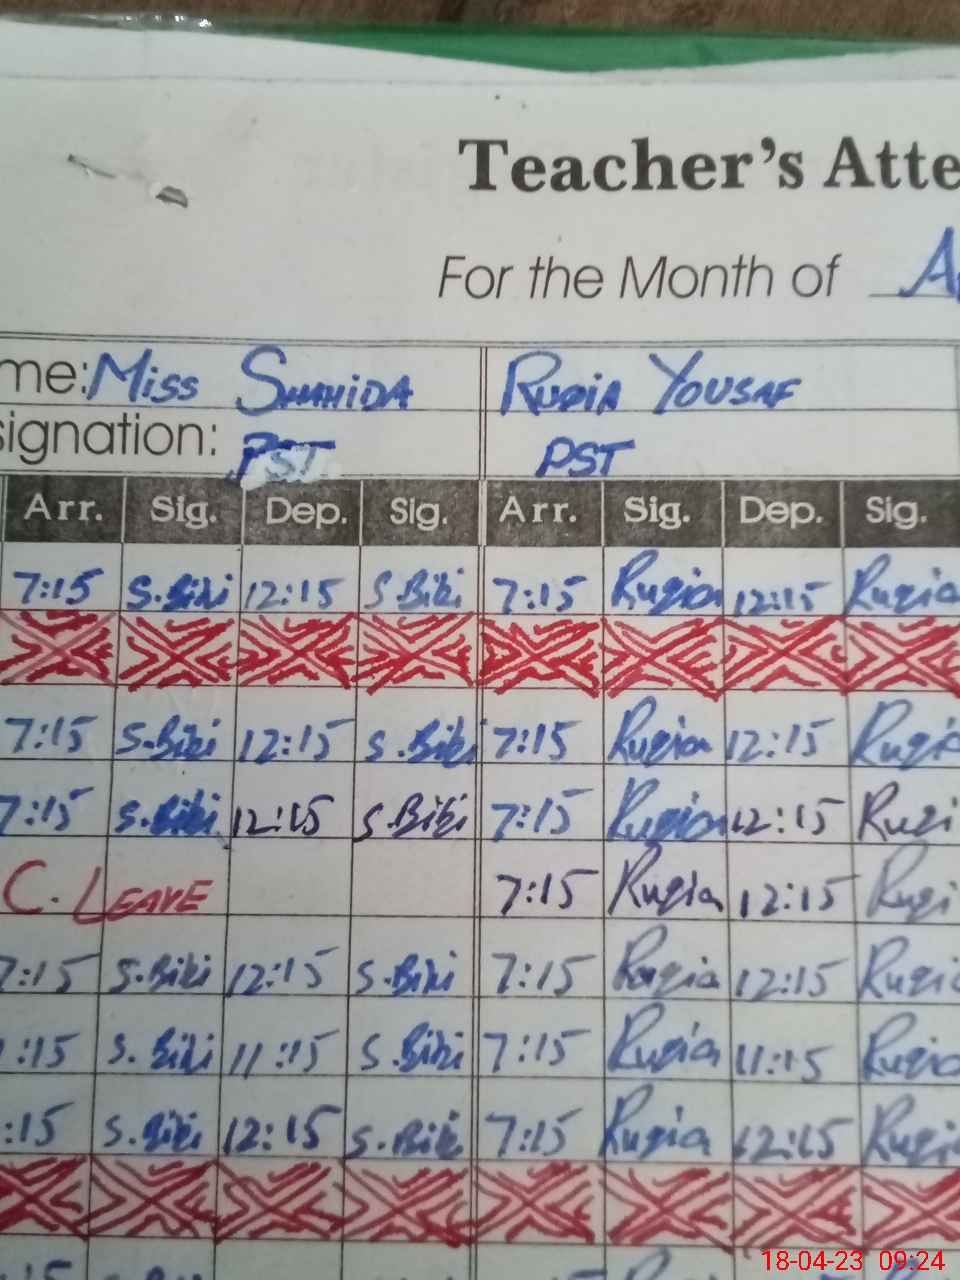 Teacher's Atte
For the Month of A
me: Miss SHAHIDA RUQIA YOUSAF
signation: PST PST
Arr. Sig. Dep. Sig. Arr. Sig. Dep. Sig.
7:15 S.Bibi 12:15 S.Bibi 7:15 Ruqia 12:15 Ruqia
7:15 S.Bibi 12:15 S.Bibi 7:15 Ruqia 12:15 Ruqia
7:15 S.Bibi 12:15 S.Bibi 7:15 Ruqia 12:15 Ruqi
C. LEAVE 7:15 Ruqia 12:15 Ruqi
7:15 S.Bibi 12:15 S.Bibi 7:15 Ruqia 12:15 Ruqia
:15 S. Bibi 11:15 S.Bibi 7:15 Ruqia 11:15 Ruqia
:15 S.Bibi 12:15 S.Bibi 7:15 Ruqia 12:15 Ruqia
18-04-23 09:24